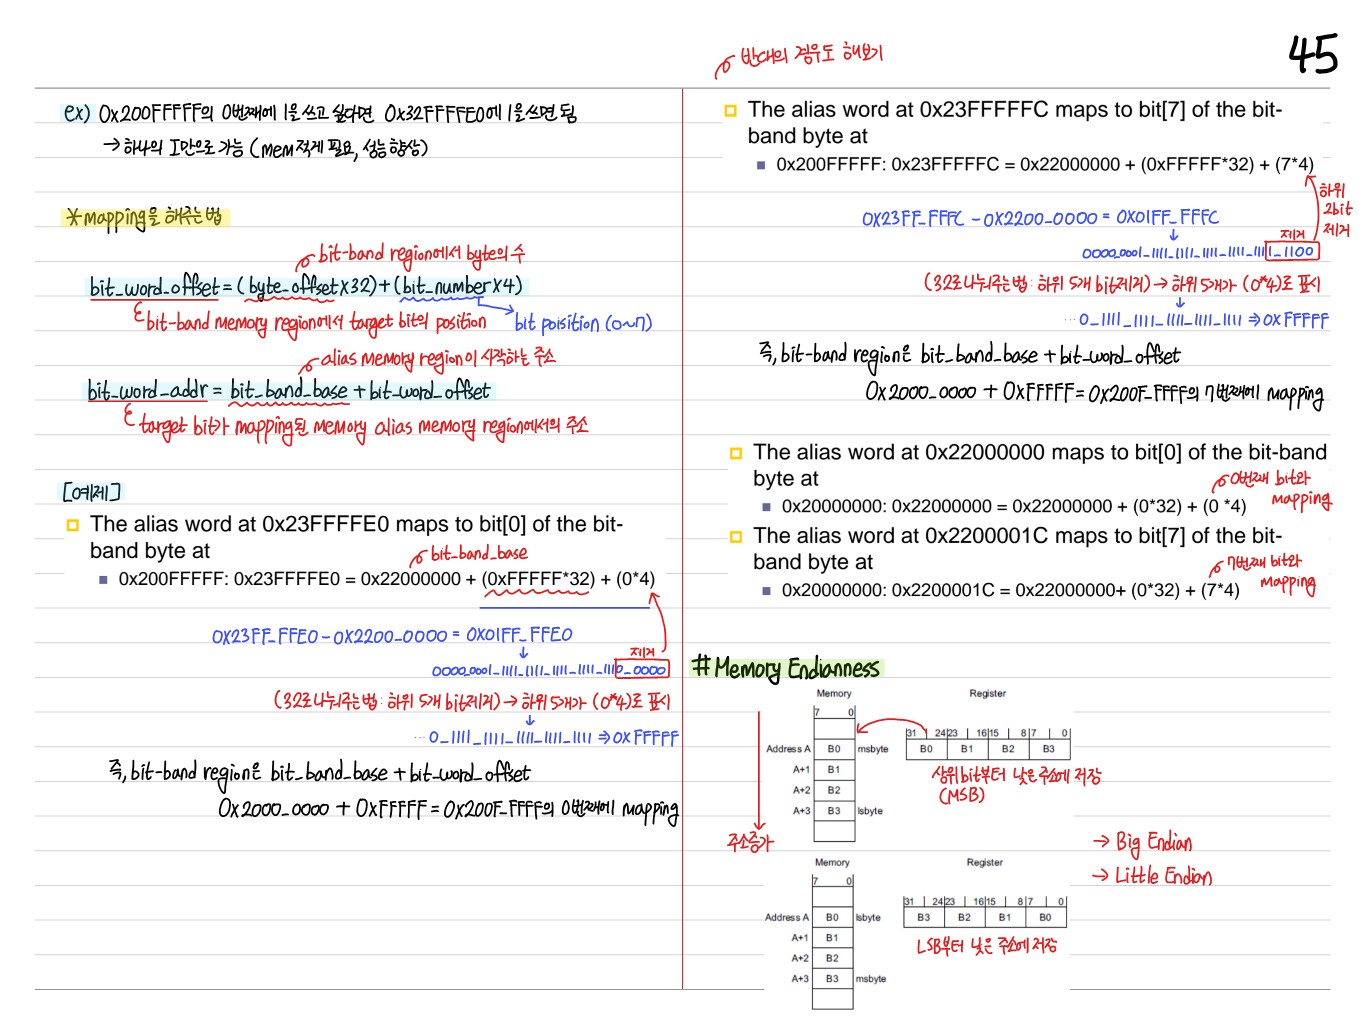 45
ex) 0x200FFFFF의 0번째에 1을 쓰고 싶다면 0x32FFFFE0에 1을 쓰면 됨
→ 하나의 I만으로 가능 (mem 적게 필요, 성능 향상)
*mapping을 해주는 법
bit-band region에서 byte의 수
bit_word_offset = (byte_offset x 32) + (bit_number x 4)
bit-band memory region에서 target bit의 position
bit poisition (0~7)
alias memory region이 시작하는 주소
bit_word_addr = bit_band_base + bit_word_offset
target bit가 mapping된 memory alias memory region에서의 주소
[예제]
The alias word at 0x23FFFFE0 maps to bit[0] of the bit-
band byte at
bit_band_base
0x200FFFFF: 0x23FFFFE0 = 0x22000000 + (0xFFFFF*32) + (0*4)
0x23FF_FFE0 - 0x2200_0000 = 0x01FF_FFE0
↓
제거
0000_0001_1111_1111_1111_1111_1110_0000
(32로 나눠주는 법 : 하위 5개 bit 제거) → 하위 5개가 (0*4)로 표시
↓
... 0_1111_1111_1111_1111_1111 ⇒ 0xFFFFF
즉, bit-band region은 bit_band_base + bit_word_offset
0x2000_0000 + 0xFFFFF = 0x200F_FFFF의 0번째에 mapping
반대의 경우도 해보기
The alias word at 0x23FFFFFC maps to bit[7] of the bit-
band byte at
0x200FFFFF: 0x23FFFFFC = 0x22000000 + (0xFFFFF*32) + (7*4)
하위
2bit
제거
0x23FF_FFFC - 0x2200_0000 = 0x01FF_FFFC
↓
제거
0000_0001_1111_1111_1111_1111_1111_1100
(32로 나눠주는 법 : 하위 5개 bit 제거) → 하위 5개가 (0*4)로 표시
↓
... 0_1111_1111_1111_1111_1111 ⇒ 0xFFFFF
즉, bit-band region은 bit_band_base + bit_word_offset
0x2000_0000 + 0xFFFFF = 0x200F_FFFF의 7번째에 mapping
The alias word at 0x22000000 maps to bit[0] of the bit-band
byte at
0번째 bit와
mapping
0x20000000: 0x22000000 = 0x22000000 + (0*32) + (0 *4)
The alias word at 0x2200001C maps to bit[7] of the bit-
band byte at
7번째 bit와
mapping
0x20000000: 0x2200001C = 0x22000000+ (0*32) + (7*4)
# Memory Endianness
Memory Register
7 0
31 24 23 16 15 8 7 0
Address A B0 msbyte B0 B1 B2 B3
A+1 B1
A+2 B2
A+3 B3 lsbyte
상위 bit부터 낮은 주소에 저장
(MSB)
주소증가
→ Big Endian
→ Little Endian
Memory Register
7 0
31 24 23 16 15 8 7 0
Address A B0 lsbyte B3 B2 B1 B0
A+1 B1
A+2 B2
A+3 B3 msbyte
LSB부터 낮은 주소에 저장